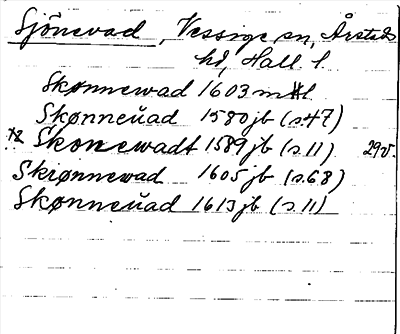 Sjönevad, Vessige sn, Årstads
hd, Hall. l.
Skønnewad 1603 mtl
Skønneŭad 1580 jb (s 47)
Skonewadt 1589 jb (s. 11) 29v.
Skiønnewad 1605 jb (s. 68)
Skønneŭad 1613 jb (s 11)